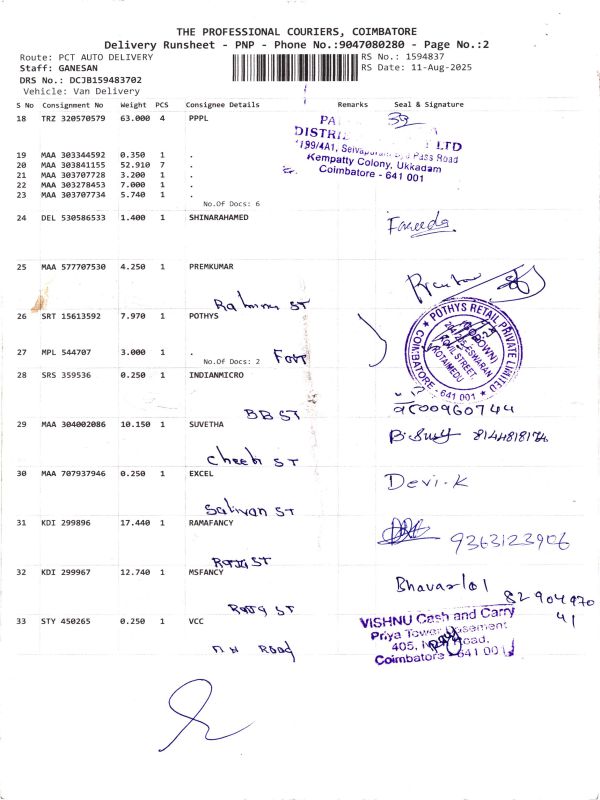 THE PROFESSIONAL COURIERS, COIMBATORE
Delivery Runsheet - PNP - Phone No.:9047080280 - Page No.:2
Route: PCT AUTO DELIVERY
Staff: GANESAN
DRS No.: DCJB159483702
Vehicle: Van Delivery
RS No.: 1594837
RS Date: 11-Aug-2025
S No Consignment No Weight PCS Consignee Details Remarks Seal & Signature
18 TRZ 320570579 63.000 4 PPPL
LTD
Pass Road
Kempatty Colony, Ukkadam
Coimbatore - 641 001
19 MAA 303344592 0.350 1 .
20 MAA 303841155 52.910 7 .
21 MAA 303707728 3.200 1 .
22 MAA 303278453 7.000 1 .
23 MAA 303707734 5.740 1 .
No.Of Docs: 6
24 DEL 530586533 1.400 1 SHINARAHAMED
Fareeda
25 MAA 577707530 4.250 1 PREMKUMAR
ST
26 SRT 15613592 7.970 1 POTHYS
POTHYS RETAIL PRIVATE LIMITED
COIMBATORE - 641 001
(GODOWN)
STREET,
KOTAIMEDU
27 MPL 544707 3.000 1 .
No.Of Docs: 2
28 SRS 359536 0.250 1 INDIANMICRO
BB ST
29 MAA 304002086 10.150 1 SUVETHA
8144818174
ST
30 MAA 707937946 0.250 1 EXCEL
Devi.K
ST
31 KDI 299896 17.440 1 RAMAFANCY
9363123906
ST
32 KDI 299967 12.740 1 MSFANCY
82 904970
41
ST
33 STY 450265 0.250 1 VCC
VISHNU Cash and Carry
Priya Tower Basement
405, Road,
Coimbatore - 641 001
Road